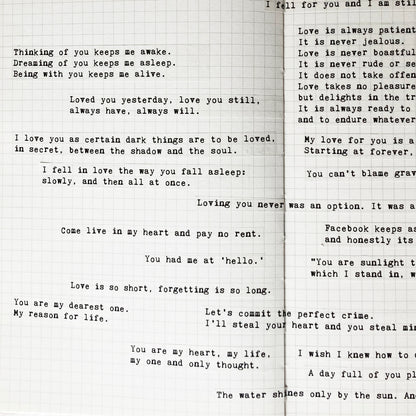 I fell for you and I am
Thinking of you keeps me awake.
Dreaming of you keeps me asleep.
Being with you keeps me alive.
Loved you yesterday, love you still,
always have, always will.
I love you as certain dark things are to be loved,
in secret, between the shadow and the soul.
I fell in love the way you fall asleep:
slowly, and then all at once.
Loving you never was an option. It was a
Come live in my heart and pay no rent.
You had me at 'hello.'
Love is so short, forgetting is so long.
You are my dearest one.
My reason for life.
Let's commit the perfect crime.
I'll steal your heart and you steal
You are my heart, my life,
my one and only thought.
The water shines only by the sun.
Love is always patient
It is never jealous.
Love is never boastful
It is never rude or
It does not take
Love takes no pleasure
but delights in the
It is always ready to
and to endure
My love for you is a
Starting at forever,
You can't blame
Facebook keeps
and honestly its
"You are sunlight
which I stand in,
I wish I knew how to
A day full of you